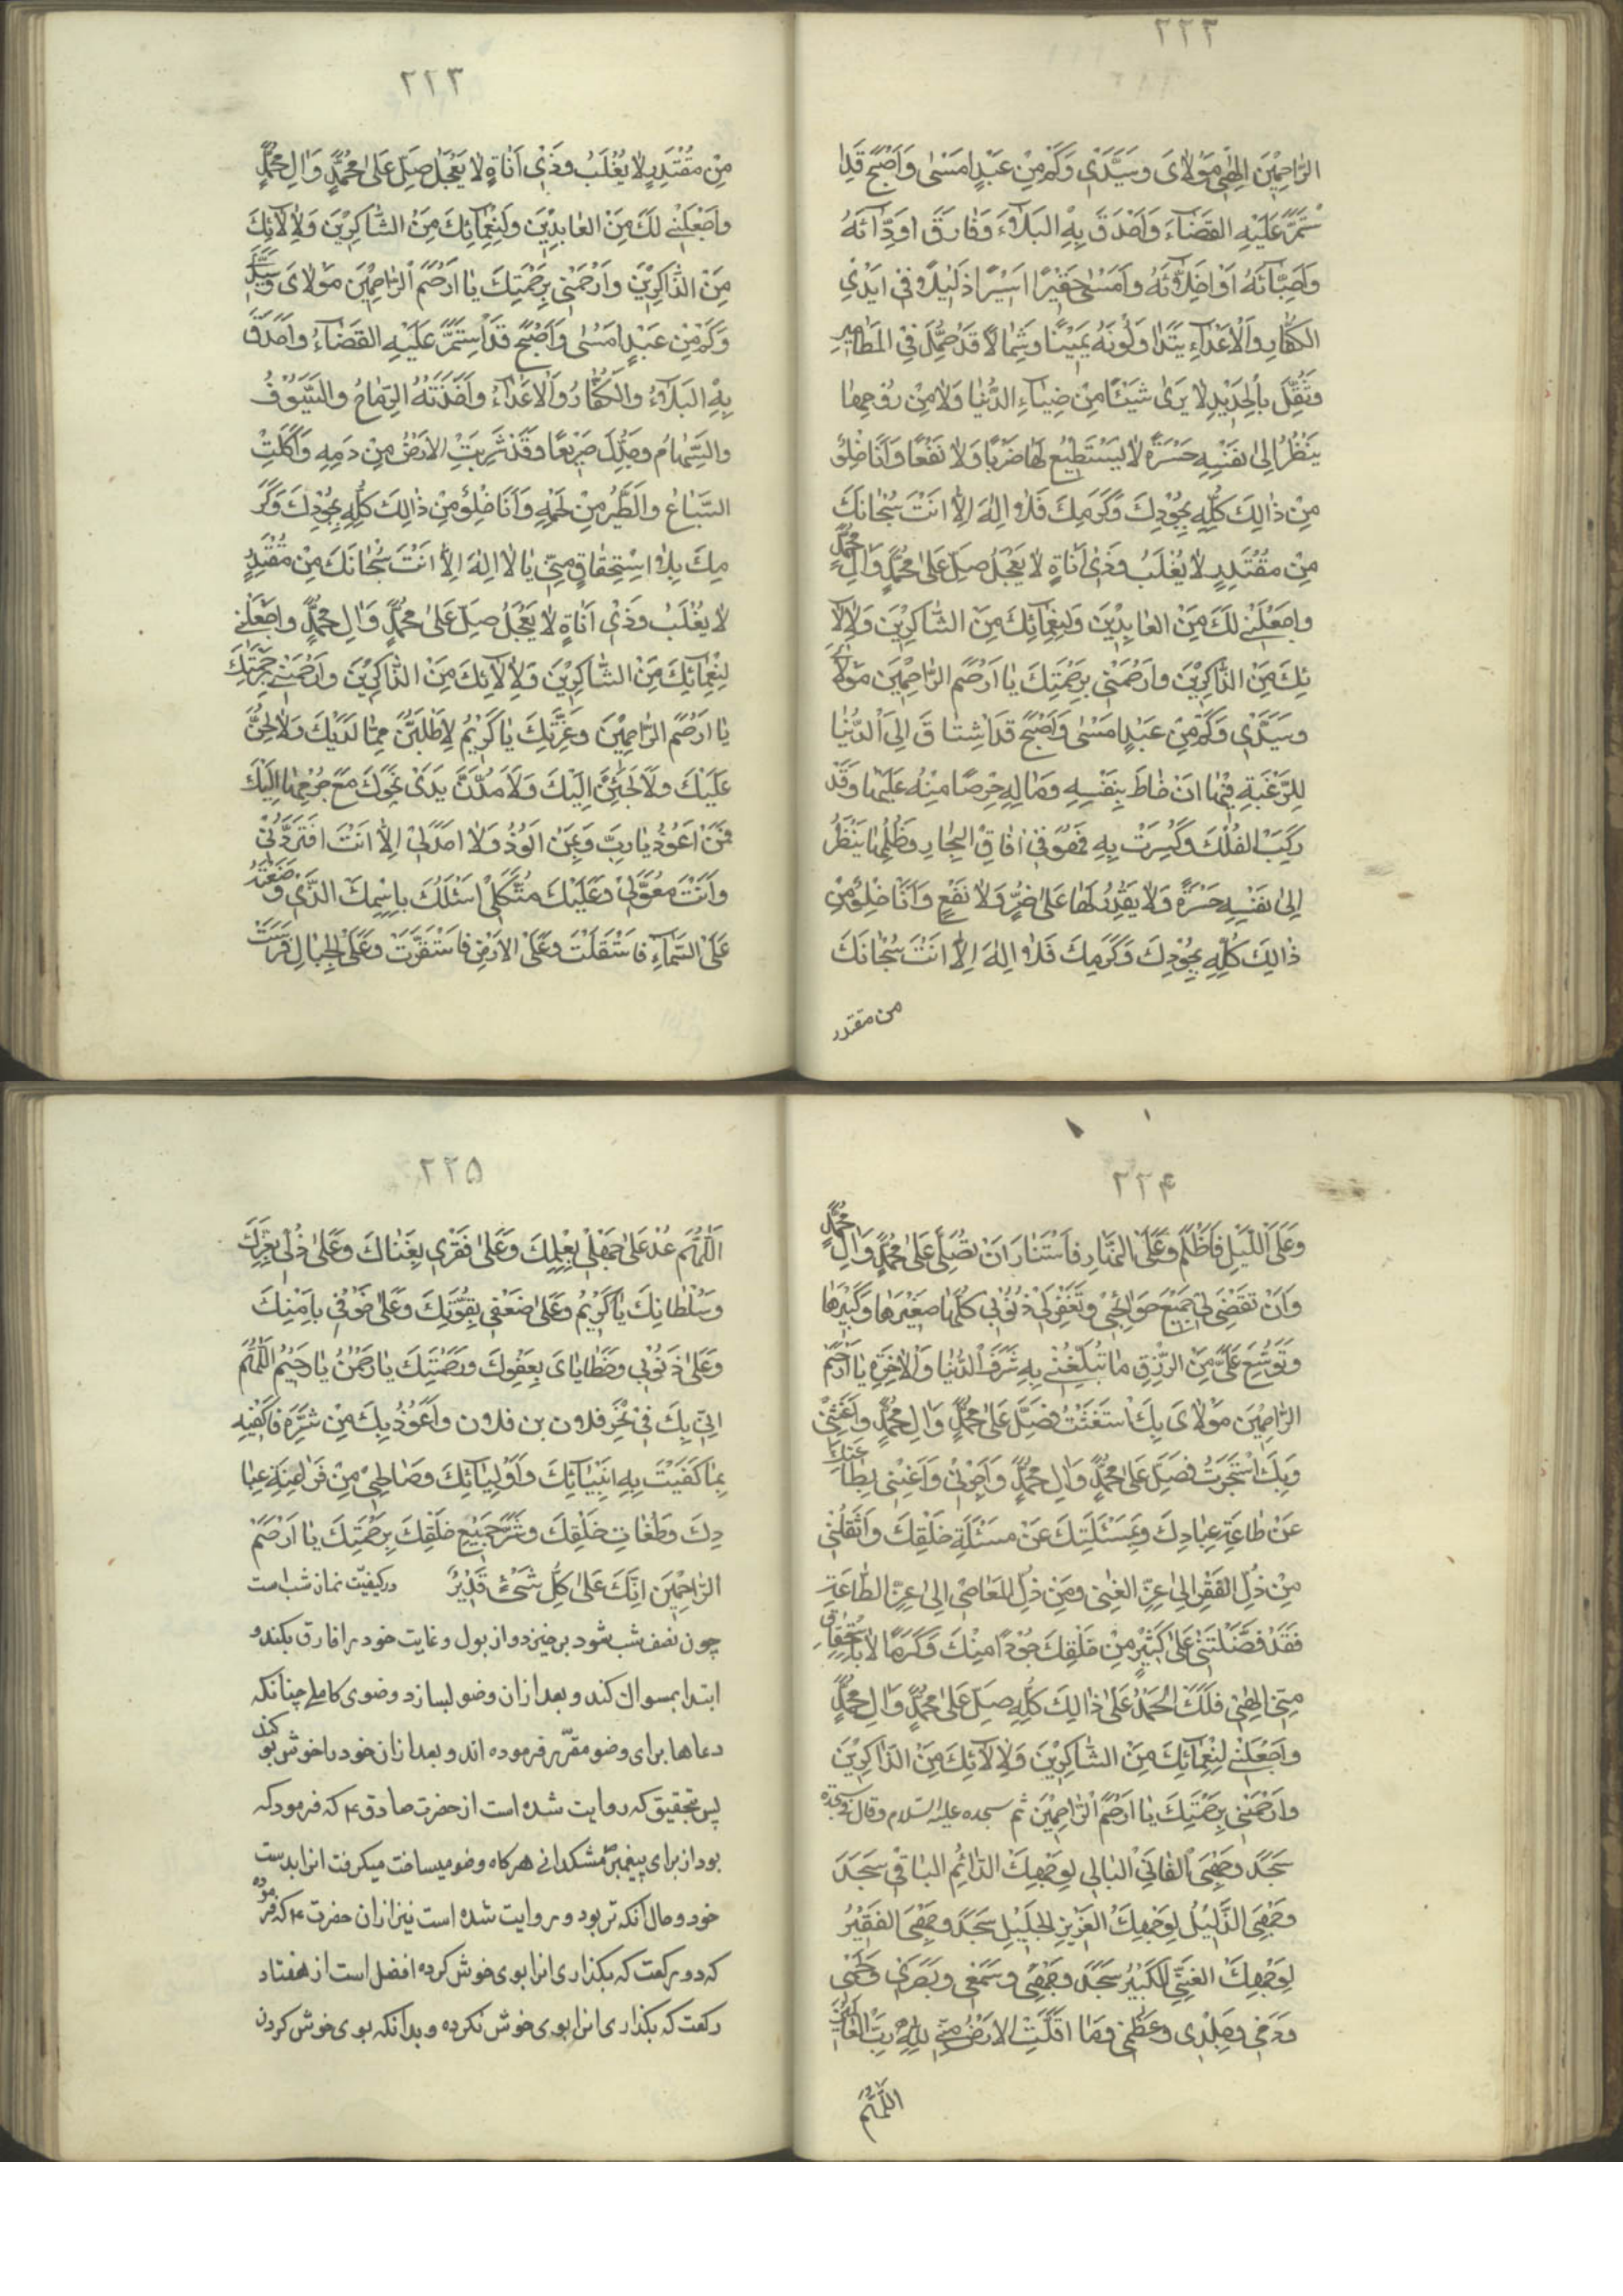 ٢٢٢
الرَّاحِمِيْنَ اِلٰهِيْ مَوْلَايَ وَسَيِّدِيْ وَكَمْ مِنْ عَبْدٍ اَمْسٰى وَاَصْبَحَ قَدِ ا
سْتَمَرَّ عَلَيْهِ القَضَاءُ وَاَحْدَقَ بِهِ البَلَاءُ وَفَارَقَ اَوِدّائَهُ
وَاَحِبّائَهُ اَوْ اَخِلّائَهُ وَاَمْسٰى حَقِيْرًا اَسِيْرًا ذَلِيْلًا فِيْ اَيْدِي
الكُفّارِ وَالْاَعْدَاءِ يَتَدَاوَلُونَهُ يَمِيْنًا وَشِمَالًا قَدْ حُمِّلَ فِي المَطَامِيرِ
وَثُقِّلَ بِالْحَدِيْدِ لَا يَرٰى شَيْئًا مِنْ ضِيَاءِ الدُّنْيَا وَلَا مِنْ رَوْحِهَا
يَنْظُرُ اِلٰى نَفْسِهِ حَسْرَةً لَا يَسْتَطِيْعُ لَهَا ضَرًّا وَلَا نَفْعًا وَاَنَا خِلْوٌ
مِنْ ذٰالِكَ كُلِّهِ بِجُوْدِكَ وَكَرَمِكَ فَلَا اِلٰهَ اِلَّا اَنْتَ سُبْحَانَكَ
مِنْ مُقْتَدِرٍ لَا يُغْلَبُ وَذِيْ اَنَاةٍ لَا يَعْجَلُ صَلِّ عَلٰى مُحَمَّدٍ وَاٰلِ مُحَمَّدٍ
وَاجْعَلْنِيْ لَكَ مِنَ العَابِدِيْنَ وَلِنِعْمَائِكَ مِنَ الشَّاكِرِيْنَ وَلِاٰلَا
ئِكَ مِنَ الذَّاكِرِيْنَ وَارْحَمْنِيْ بِرَحْمَتِكَ يَا اَرْحَمَ الرَّاحِمِيْنَ مَوْلَايَ
وَسَيِّدِيْ وَكَمْ مِنْ عَبْدٍ اَمْسٰى وَاَصْبَحَ قَدِ اشْتَاقَ اِلَى الدُّنْيَا
لِلرَّغْبَةِ فِيْهَا اَنْ خَاطَرَ بِنَفْسِهِ وَمَالِهِ حِرْصًا مِنْهُ عَلَيْهَا وَقَدْ
رَكِبَ الفُلْكَ وَكُسِرَتْ بِهِ فَهُوَ فِيْ اٰفَاقِ البِحَارِ وَظُلَمِهَا يَنْظُرُ
اِلٰى نَفْسِهِ حَسْرَةً وَلَا يَقْدِرُ لَهَا عَلٰى ضَرٍّ وَلَا نَفْعٍ وَاَنَا خِلْوٌ مِنْ
ذٰالِكَ كُلِّهِ بِجُوْدِكَ وَكَرَمِكَ فَلَا اِلٰهَ اِلَّا اَنْتَ سُبْحَانَكَ
من مقتدر
٢٢٣
مِنْ مُقْتَدِرٍ لَا يُغْلَبُ وَذِيْ اَنَاةٍ لَا يَعْجَلُ صَلِّ عَلٰى مُحَمَّدٍ وَاٰلِ مُحَمَّدٍ
وَاجْعَلْنِيْ لَكَ مِنَ العَابِدِيْنَ وَلِنِعْمَائِكَ مِنَ الشَّاكِرِيْنَ وَلِاٰلَائِكَ
مِنَ الذَّاكِرِيْنَ وَارْحَمْنِيْ بِرَحْمَتِكَ يَا اَرْحَمَ الرَّاحِمِيْنَ مَوْلَايَ وَسَيِّدِيْ
وَكَمْ مِنْ عَبْدٍ اَمْسٰى وَاَصْبَحَ قَدِ اسْتَمَرَّ عَلَيْهِ القَضَاءُ وَاَحْدَقَ
بِهِ البَلَاءُ وَالكُفَّارُ وَالْاَعْدَاءُ وَاَخَذَتْهُ الرِّمَاحُ وَالسُّيُوْفُ
وَالسِّهَامُ وَجُدِّلَ صَرِيْعًا وَقَدْ شَرِبَتِ الْاَرْضُ مِنْ دَمِهِ وَاَكَلَتِ
السِّبَاعُ وَالطَّيْرُ مِنْ لَحْمِهِ وَاَنَا خِلْوٌ مِنْ ذٰالِكَ كُلِّهِ بِجُوْدِكَ وَكَرَ
مِكَ بِلَا اسْتِحْقَاقٍ مِنِّيْ يَا لَا اِلٰهَ اِلَّا اَنْتَ سُبْحَانَكَ مِنْ مُقْتَدِرٍ
لَا يُغْلَبُ وَذِيْ اَنَاةٍ لَا يَعْجَلُ صَلِّ عَلٰى مُحَمَّدٍ وَاٰلِ مُحَمَّدٍ وَاجْعَلْنِيْ
لِنِعْمَائِكَ مِنَ الشَّاكِرِيْنَ وَلِاٰلَائِكَ مِنَ الذَّاكِرِيْنَ وَارْحَمْنِيْ بِرَحْمَتِكَ
يَا اَرْحَمَ الرَّاحِمِيْنَ وَعِزَّتِكَ يَا كَرِيْمُ لَاَطْلُبَنَّ مِمَّا لَدَيْكَ وَلَاُلِحَّنَّ
عَلَيْكَ وَلَاَلْجَئَنَّ اِلَيْكَ وَلَاَمُدَّنَّ يَدَيَّ نَحْوَكَ مَعَ جُرْمِهَا اِلَيْكَ
فَبِمَنْ اَعُوْذُ يَا رَبِّ وَبِمَنْ اَلُوْذُ وَلَا اَحَدَ لِيْ اِلَّا اَنْتَ اَفَتَرُدُّنِيْ
وَاَنْتَ مُعَوَّلِيْ وَعَلَيْكَ مُتَّكَلِيْ اَسْئَلُكَ بِاسْمِكَ الَّذِيْ وَضَعْتَهُ
عَلَى السَّمَاءِ فَاسْتَقَلَّتْ وَعَلَى الْاَرْضِ فَاسْتَقَرَّتْ وَعَلَى الْجِبَالِ فَرَسَتْ
٢٢۴
وَعَلَى اللَّيْلِ فَاَظْلَمَ وَعَلَى النَّهَارِ فَاسْتَنَارَ اَنْ تُصَلِّيَ عَلٰى مُحَمَّدٍ وَاٰلِ مُحَمَّدٍ
وَاَنْ تَقْضِيَ لِيْ جَمِيْعَ حَوَائِجِيْ وَتَغْفِرَ لِيْ ذُنُوْبِيْ كُلَّهَا صَغِيْرَهَا وَكَبِيْرَهَا
وَتُوَسِّعَ عَلَيَّ مِنَ الرِّزْقِ مَا تُبَلِّغُنِيْ بِهِ شَرَفَ الدُّنْيَا وَالْاٰخِرَةِ يَا اَرْحَمَ
الرَّاحِمِيْنَ مَوْلَايَ بِكَ اسْتَغَثْتُ فَصَلِّ عَلٰى مُحَمَّدٍ وَاٰلِ مُحَمَّدٍ وَاَغِثْنِيْ
وَبِكَ اسْتَجَرْتُ فَصَلِّ عَلٰى مُحَمَّدٍ وَاٰلِ مُحَمَّدٍ وَاَجِرْنِيْ وَاَغْنِنِيْ بِطَاعَتِكَ
عَنْ طَاعَةِ عِبَادِكَ وَبِمَسْئَلَتِكَ عَنْ مَسْئَلَةِ خَلْقِكَ وَانْقُلْنِيْ
مِنْ ذُلِّ الفَقْرِ اِلٰى عِزِّ الغِنٰى وَمِنْ ذُلِّ المَعَاصِيْ اِلٰى عِزِّ الطَّاعَةِ
فَقَدْ فَضَّلْتَنِيْ عَلٰى كَثِيْرٍ مِنْ خَلْقِكَ جُوْدًا مِنْكَ وَكَرَمًا لَا بِاسْتِحْقَاقٍ
مِنِّيْ اِلٰهِيْ فَلَكَ الْحَمْدُ عَلٰى ذٰالِكَ كُلِّهِ صَلِّ عَلٰى مُحَمَّدٍ وَاٰلِ مُحَمَّدٍ
وَاجْعَلْنِيْ لِنِعْمَائِكَ مِنَ الشَّاكِرِيْنَ وَلِاٰلَائِكَ مِنَ الذَّاكِرِيْنَ
وَارْحَمْنِيْ بِرَحْمَتِكَ يَا اَرْحَمَ الرَّاحِمِيْنَ ثم سجده عليه السلام وقال في سجدة
سَجَدَ وَجْهِيَ الفَانِي البَالِي لِوَجْهِكَ الدَّائِمِ البَاقِيْ سَجَدَ
وَجْهِيَ الذَّلِيْلُ لِوَجْهِكَ العَزِيْزِ الجَلِيْلِ سَجَدَ وَجْهِيَ الفَقِيْرُ
لِوَجْهِكَ الغَنِيِّ الكَبِيْرِ سَجَدَ وَجْهِيْ وَسَمْعِيْ وَبَصَرِيْ وَلَحْمِيْ
وَدَمِيْ وَجِلْدِيْ وَعَظْمِيْ وَمَا اَقَلَّتِ الْاَرْضُ مِنِّيْ لِلّٰهِ رَبِّ العَالَمِيْنَ
اَللّٰهُمَّ
٢٢۵
اَللّٰهُمَّ عُدْ عَلٰى جَهْلِيْ بِعِلْمِكَ وَعَلٰى فَقْرِيْ بِغِنَاكَ وَعَلٰى ذُلِّيْ بِعِزِّكَ
وَسُلْطَانِكَ يَا كَرِيْمُ وَعَلٰى ضَعْفِيْ بِقُوَّتِكَ وَعَلٰى خَوْفِيْ بِاَمْنِكَ
وَعَلٰى ذُنُوْبِيْ وَخَطَايَايَ بِعَفْوِكَ وَرَحْمَتِكَ يَا رَحْمٰنُ يَا رَحِيْمُ اَللّٰهُمَّ
اِنِّيْ بِكَ فِيْ نَحْرِ فلان بن فلان وَاَعُوْذُ بِكَ مِنْ شَرِّهِ فَاكْفِنِيْهِ
بِمَا كَفَيْتَ بِهِ اَنْبِيَائِكَ وَاَوْلِيَائِكَ وَصَالِحِيْ مِنْ فَرَاعِنَةِ عِبَا
دِكَ وَطُغَاتِ خَلْقِكَ وَشَرِّ جَمِيْعِ خَلْقِكَ بِرَحْمَتِكَ يَا اَرْحَمَ
الرَّاحِمِيْنَ اِنَّكَ عَلٰى كُلِّ شَيْءٍ قَدِيْرٌ در كيفيّت نماز شب است
چون نصف شب شود برخيزد و از بول و غايت خود را فارق بكند و
ابتدا بمسواك كند و بعد از ان وضو بسازد وضوى كاملى چنانكه
دعاها براى وضو مقرّر فرموده اند و بعد از ان خود را خوش بو كند
پس بتحقيق كه روايت شده است از حضرت صادق ع كه فرمود كه
بود از براى پيغمبر ص مشكدانى هر كاه وضو ميساخت ميكرفت انرا بدست
خود و حال انكه تر بود و روايت شده است نيز از ان حضرت ع كه فرموده
كه دو ركعت كه بكذارى انرا بوى خوش كرده افضل است از هفتاد
ركعت كه بكذارى انرا بوى خوش نكرده و بدانكه بوى خوش كردن